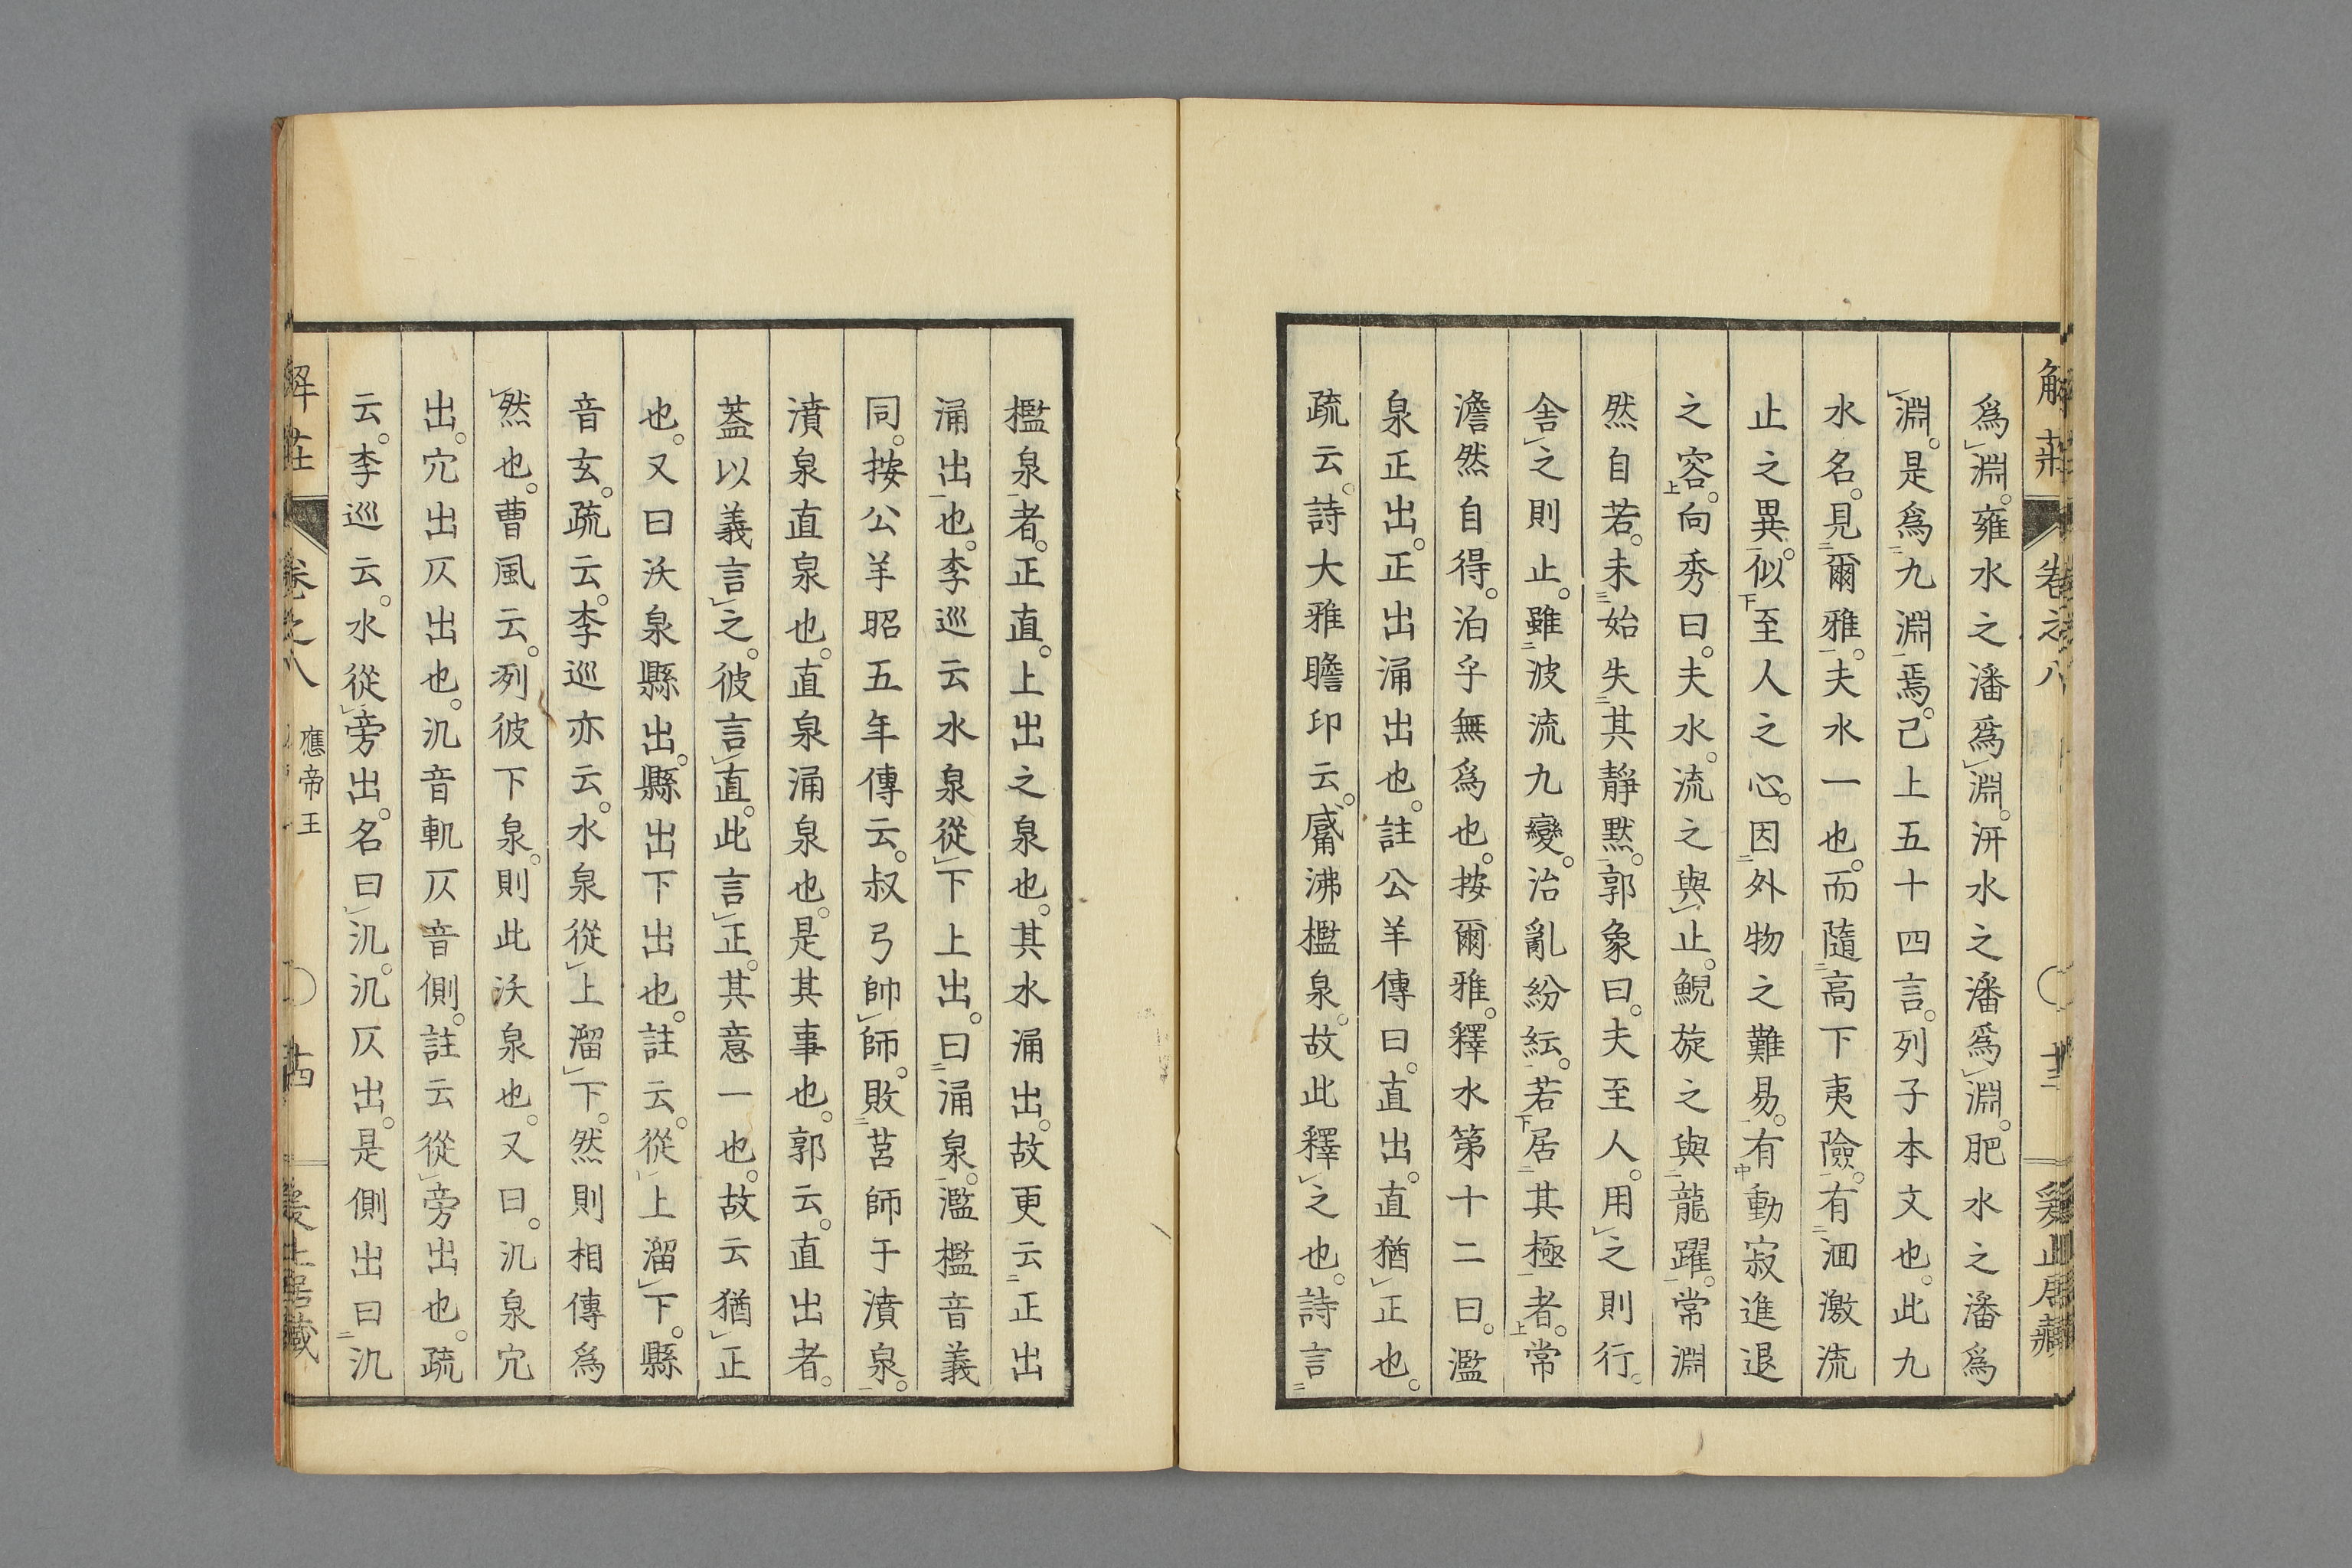 解莊
卷之八
爲淵。雍水之潘爲淵。汧水之潘爲淵。肥水之潘爲
淵。是爲九淵焉。己上五十四言。列子本文也。此九
水名。見爾雅。夫水一也。而隨高下夷險。有洄激流
止之異。似至人之心。因外物之難易。有動寂進退
之容。向秀曰。夫水。流之與止。鯢旋之與龍躍。常淵
然自若。未始失其靜默。郭象曰。夫至人。用之則行。
舍之則止。雖波流九變。治亂紛紜。若居其極者。常
澹然自得。泊乎無爲也。按爾雅。釋水第十二曰。濫
泉正出。正出涌出也。註公羊傳曰。直出。直猶正也。
疏云。詩大雅瞻卬云。觱沸檻泉。故此釋之也。詩言
檻泉者。正直。上出之泉也。其水涌出。故更云正出
涌出也。李巡云水泉從下上出。曰涌泉。濫檻音義
同。按公羊昭五年傳云。叔弓帥師。敗莒師于濆泉。
濆泉直泉也。直泉涌泉也。是其事也。郭云。直出者。
蓋以義言之。彼言直。此言正。其意一也。故云猶正
也。又曰沃泉縣出。縣出下出也。註云。從上溜下。縣
音玄。疏云。李巡亦云。水泉從上溜下。然則相傳爲
然也。曹風云。冽彼下泉。則此沃泉也。又曰。氿泉宂
出。宂出仄出也。氿音軌仄音側。註云從旁出也。疏
云。李巡云。水從旁出。名曰氿。氿仄出。是側出曰氿
卷之八
應帝王